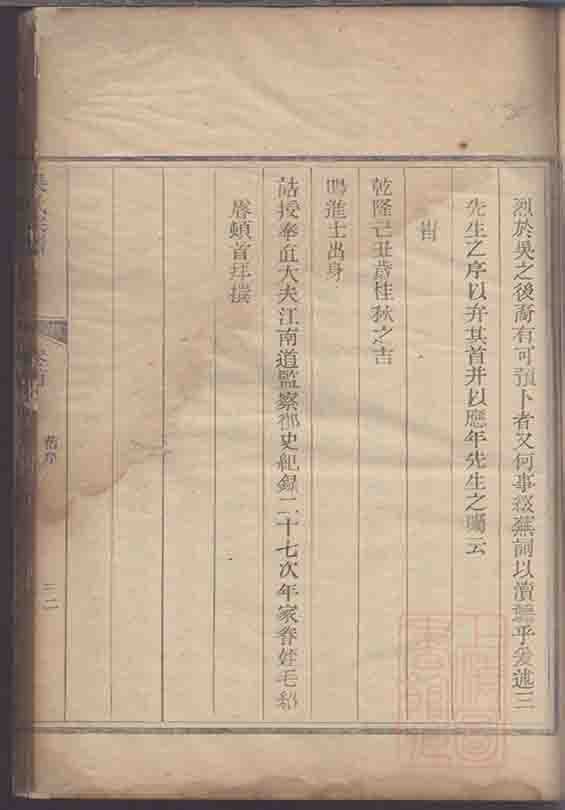 烈於吳之後裔有可預卜者又何事掇蕪詞以瀆聽乎爰述三
先生之序以弁其首并以應年先生之囑云
旹
乾隆己丑歲桂秋之吉
賜進士出身
誥授奉直大夫江南道監察御史紀錄二十七次年家眷姪毛
頓首拜撰
舊序